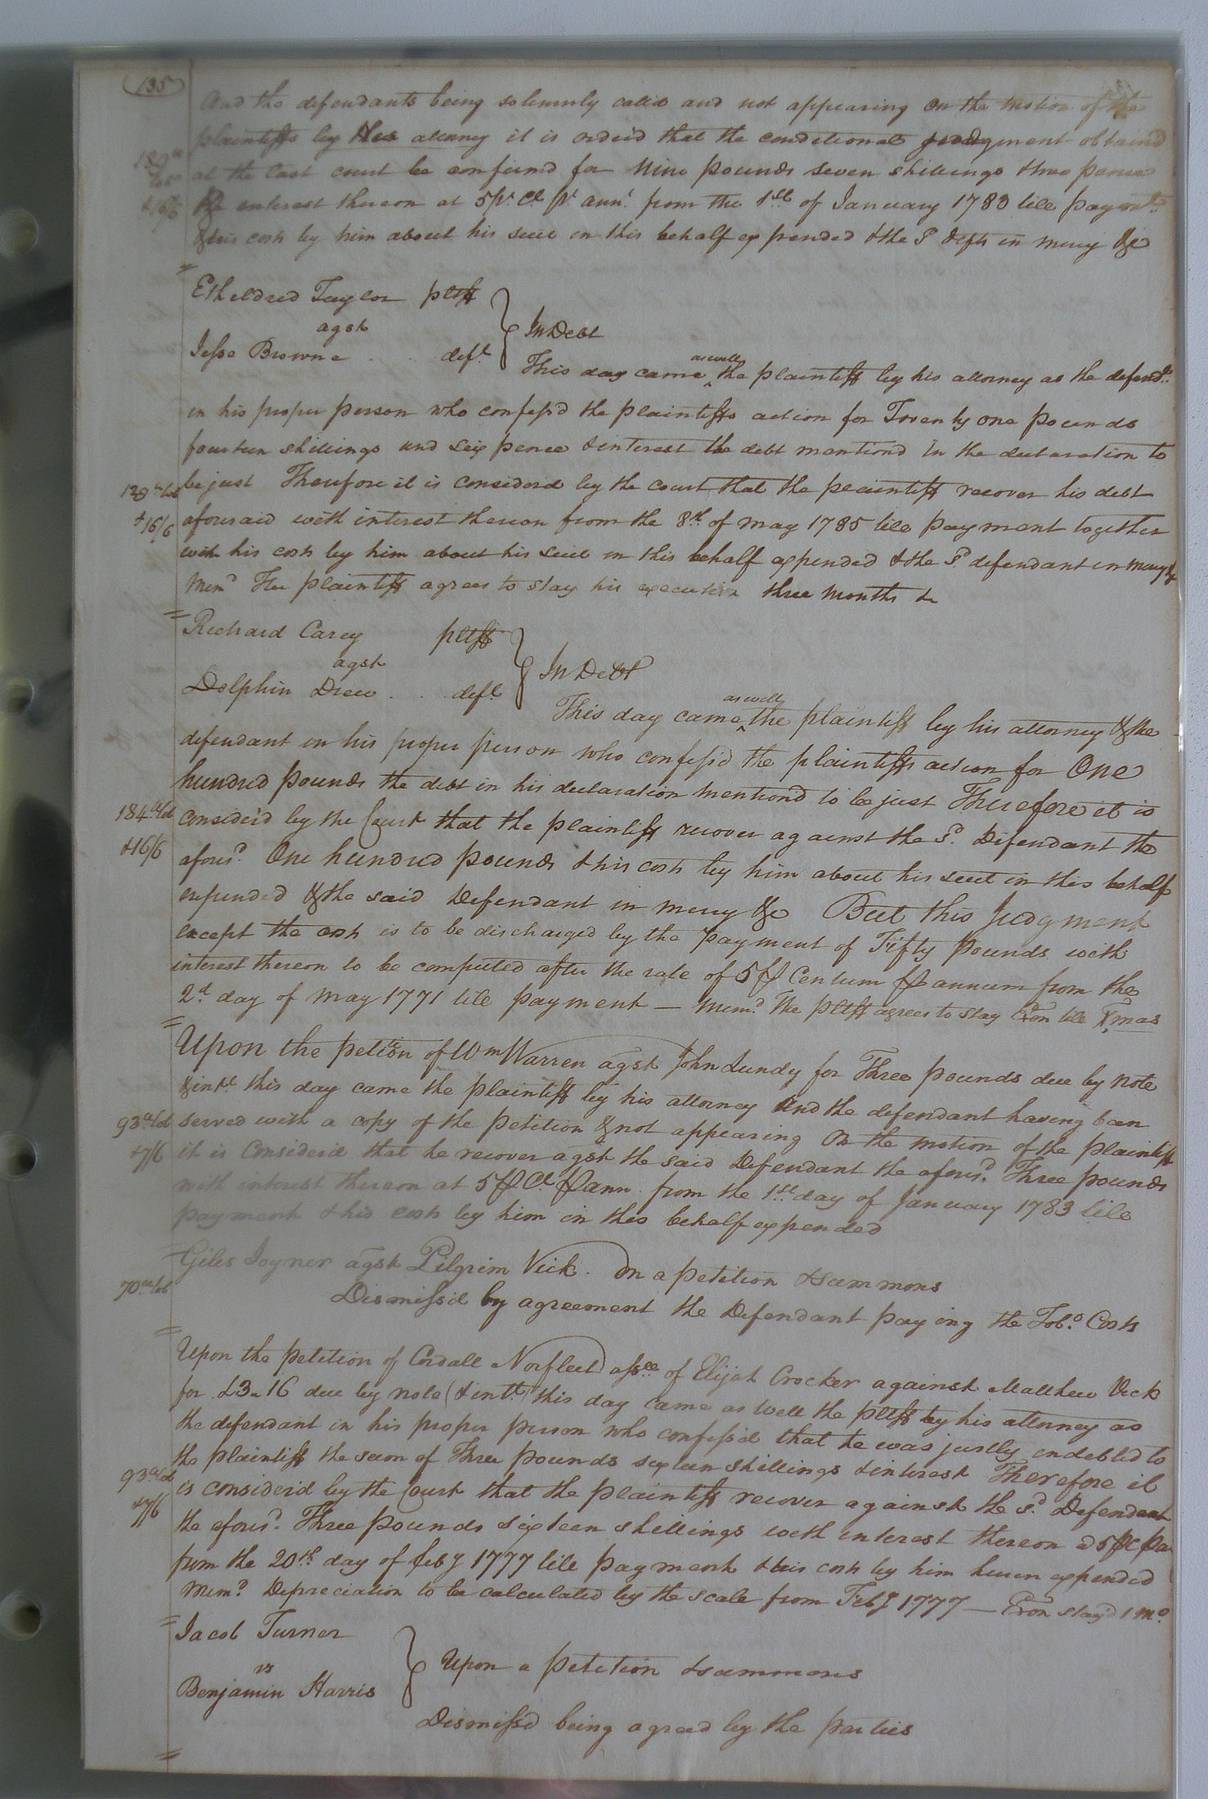 135
And the defendants being solemnly called and not appearing on the motion of the
plaintiffs by his attorney it is orderd that the conditional judgment obtained
at the last court be confirmd for Nine pounds seven shillings three pence
interest thereon at 5 Pr. Ct. Pr. ann. from the 1st of January 1783 till paymt.
& his costs by him about his suit in this behalf expended & the Sd. defts in mercy &c
Etheldred Taylor pltff
agst
Jesse Browne . . deft.
In Debt
This day came as well the plaintiff by his attorney as the defendt.
in his proper person who confess'd the plaintiffs action for Twenty one pounds
fourteen shillings and six pence & interest the debt mentiond in the declaration to
be just Therefore it is considerd by the court that the plaintiff recover his debt
aforesaid with interest thereon from the 8th. of may 1785 till payment together
with his costs by him about his suit in this behalf expended & the Sd. defendant in mercy &c
Memo. The plaintiff agrees to stay his execution three months &c
Richard Carey pltff
agst
Dolphin Drew . . deft
In Debt
This day came as well the plaintiff by his attorney & the
defendant in his proper person who confess'd the plaintiffs action for One
hundred pounds the debt in his declaration mentiond to be just Therefore it is
consider'd by the Court that the plaintiff recover against the Sd. Defendant the
aforesd. One hundred pounds & his costs by him about his suit in this behalf
expended & the said Defendant in mercy &c But this Judgment
except the costs is to be discharged by the payment of Fifty pounds with
interest thereon to be computed after the rate of 5 P Centum P annum from the
2d day of may 1771 till payment — Memo. The pltff agrees to stay Exon till Xmas
Upon the petition of Wm Warren agst John Lundy for Three pounds due by note
& intt. this day came the plaintiff by his attorney and the defendant having been
served with a copy of the petition & not appearing On the motion of the plaintiff
it is Considerd that he recover agst the said Defendant the aforesd. Three pounds
with interest thereon at 5 P Ct. P ann from the 1st day of January 1783 till
payment & his costs by him in this behalf expended
Giles Joyner agst Pilgrim Vick. On a petition & summons
Dismiss'd by agreement the Defendant paying the Tobo. Costs
Upon the petition of Cordall Norfleet assee of Elijah Crocker against Matthew Vick
for £3..16 due by note (& intt.) this day came as well the pltff by his attorney as
the defendant in his proper person who confess'd that he was justly indebted to
the plaintiff the sum of Three pounds sixteen shillings & interest Therefore it
is considerd by the Court that the plaintiff recover against the Sd. Defendant
the aforesd. Three pounds sixteen shillings with interest thereon a 5 PC Pa
from the 20th day of feby 1777 till payment & his costs by him herein expended
Memo. Depreciation to be calculated by the scale from Feby 1777 — Exon stay'd 1 mo.
Jacob Turner
vs
Benjamin Harris
Upon a petition & summons
Dismiss'd being agreed by the parties